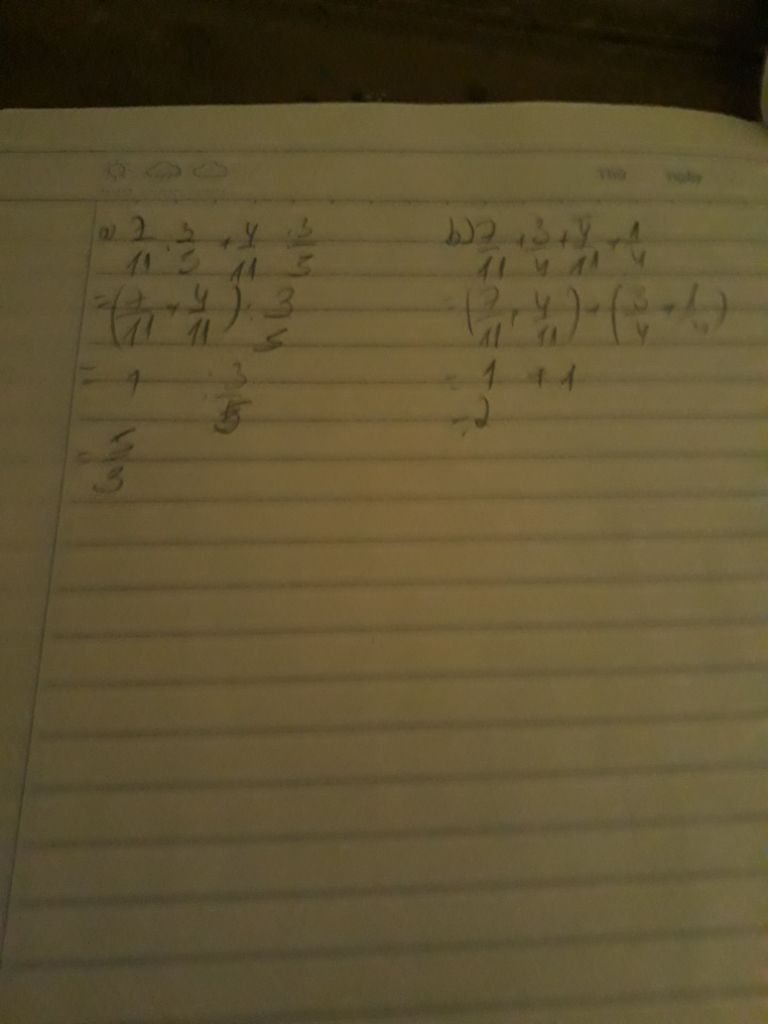 a) 7/11 . 3/5 + 4/11 . 3/5
= (7/11 + 4/11) . 3/5
= 1 . 3/5
= 5/3
b) 7/11 + 3/4 + 4/11 + 1/4
= (7/11 + 4/11) + (3/4 + 1/4)
= 1 + 1
= 2